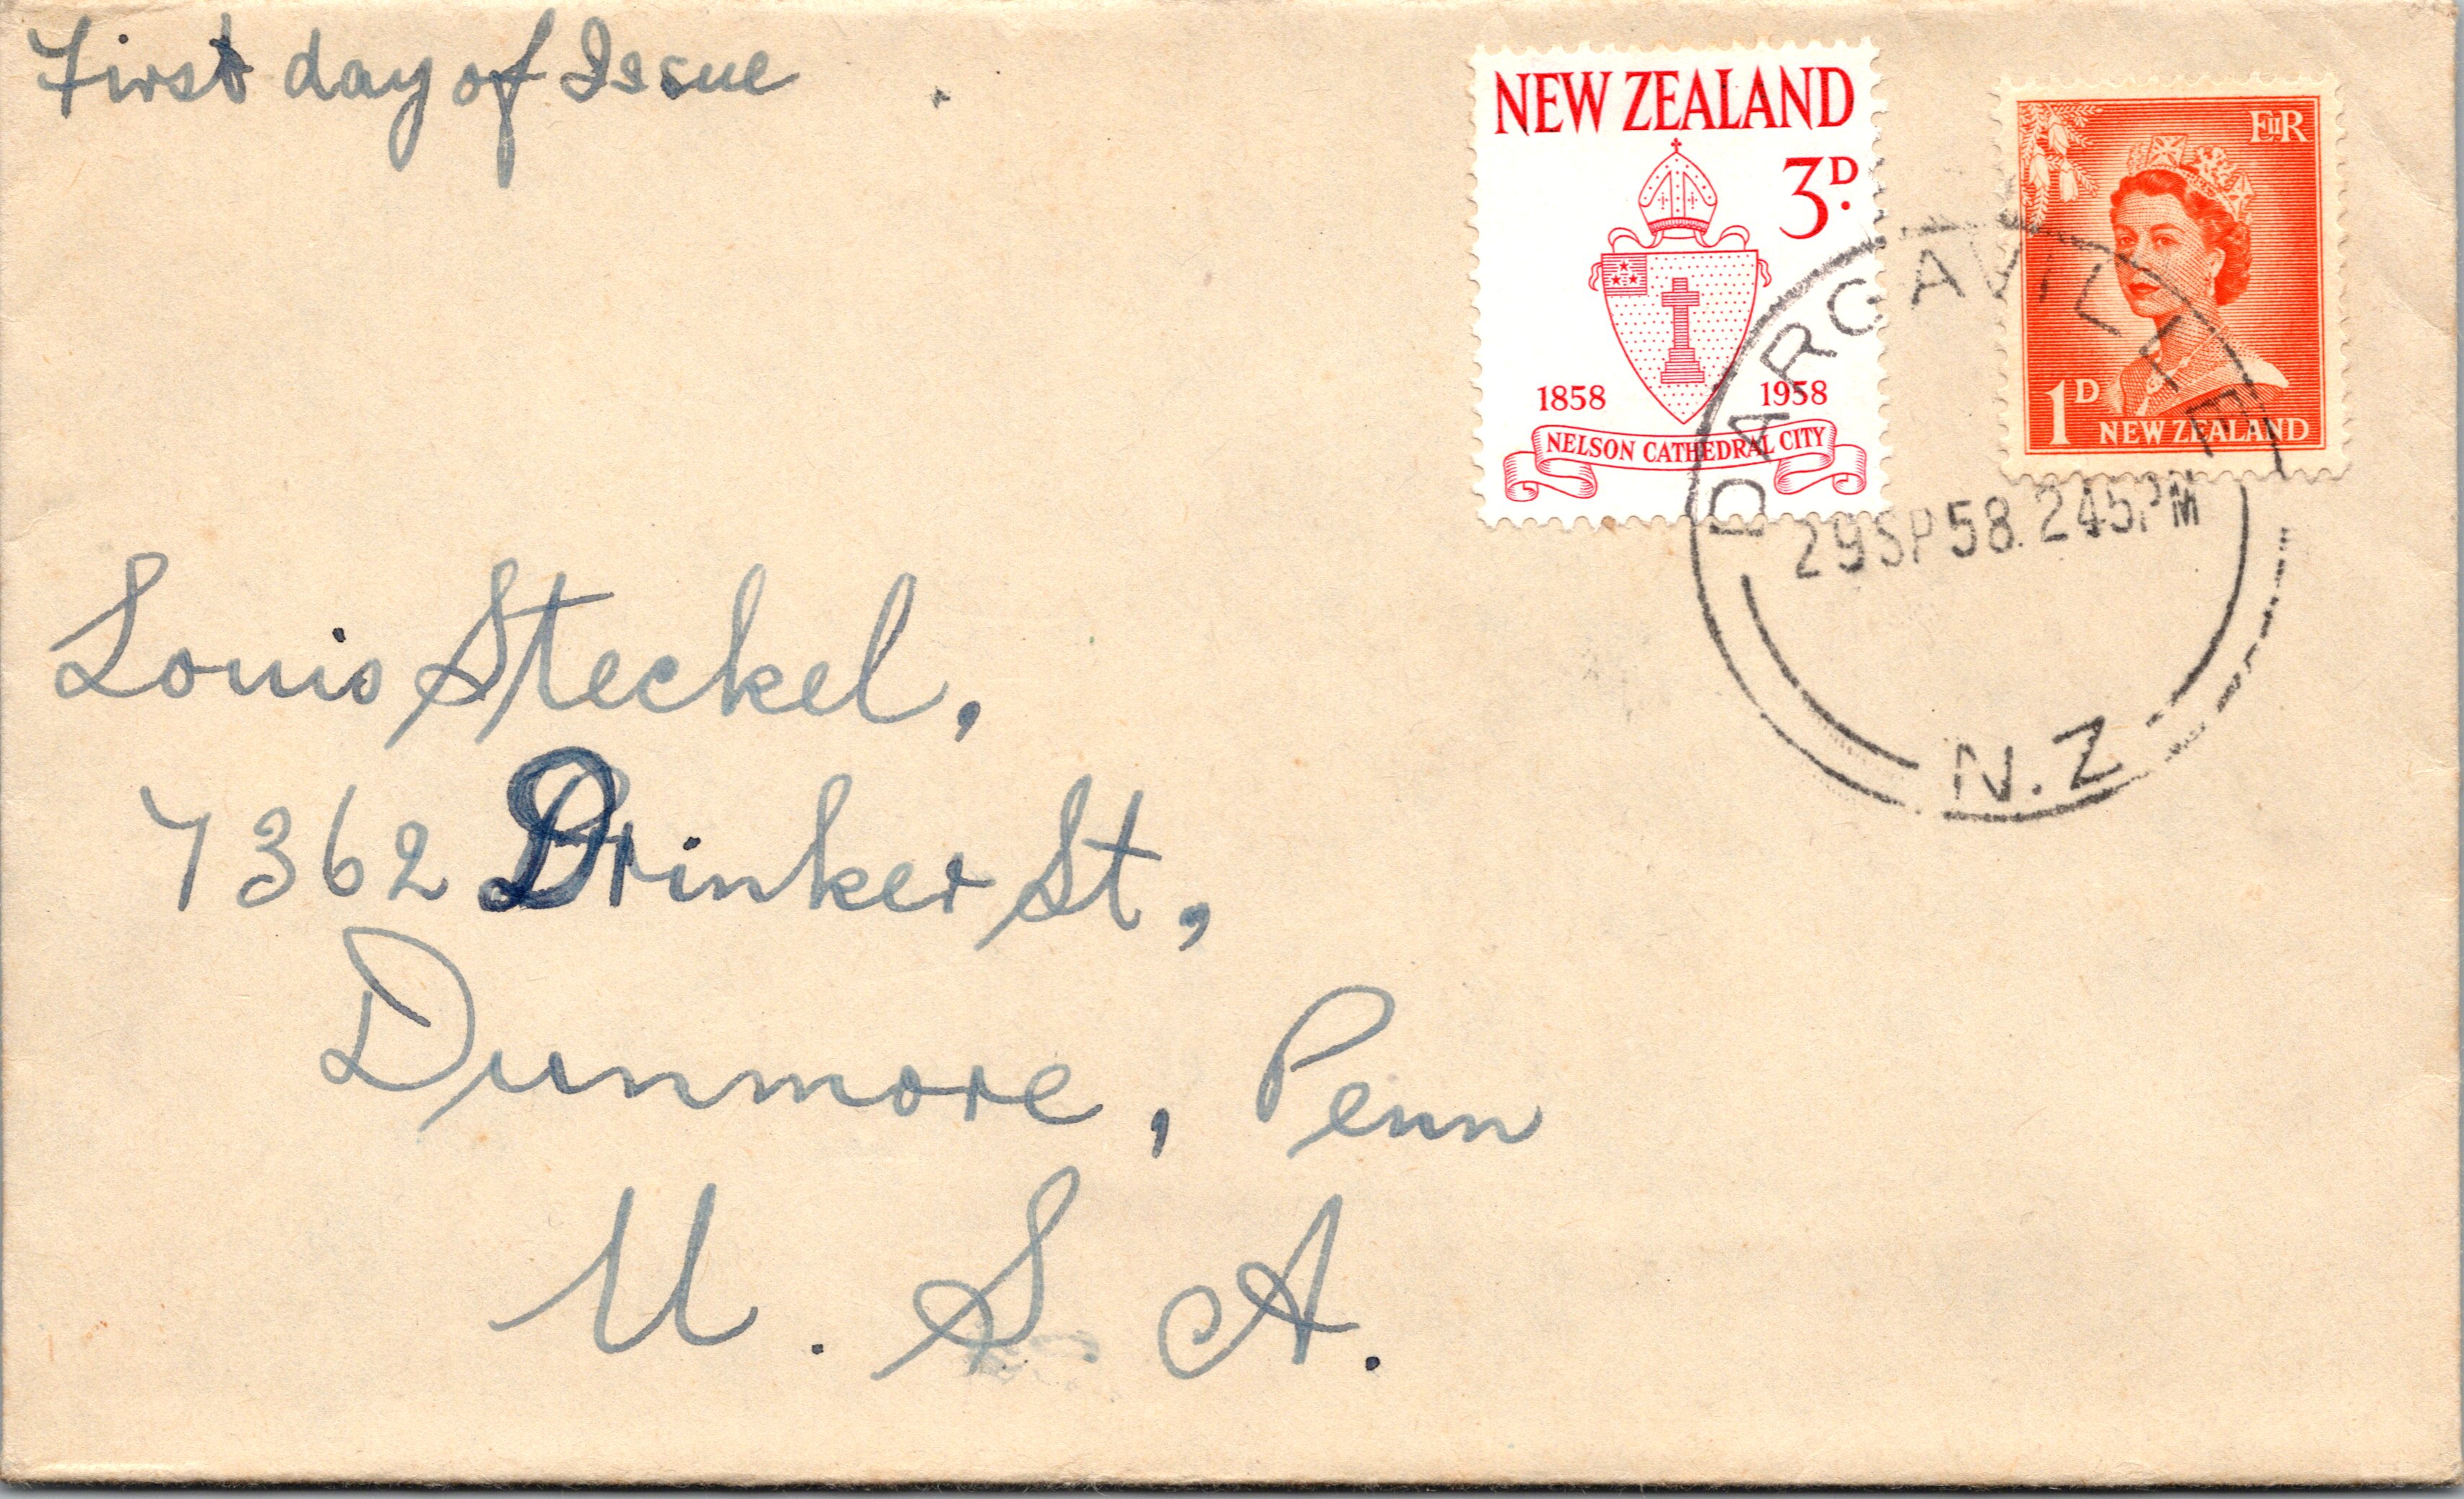 First day of Issue
NEW ZEALAND
3D.
1858 1958
NELSON CATHEDRAL CITY
EIIR
1D
NEW ZEALAND
DARGAVILLE
29SP58.245PM
N.Z
Louis Steckel,
7362 Drinker St,
Dunmore, Penn
U. S. A.